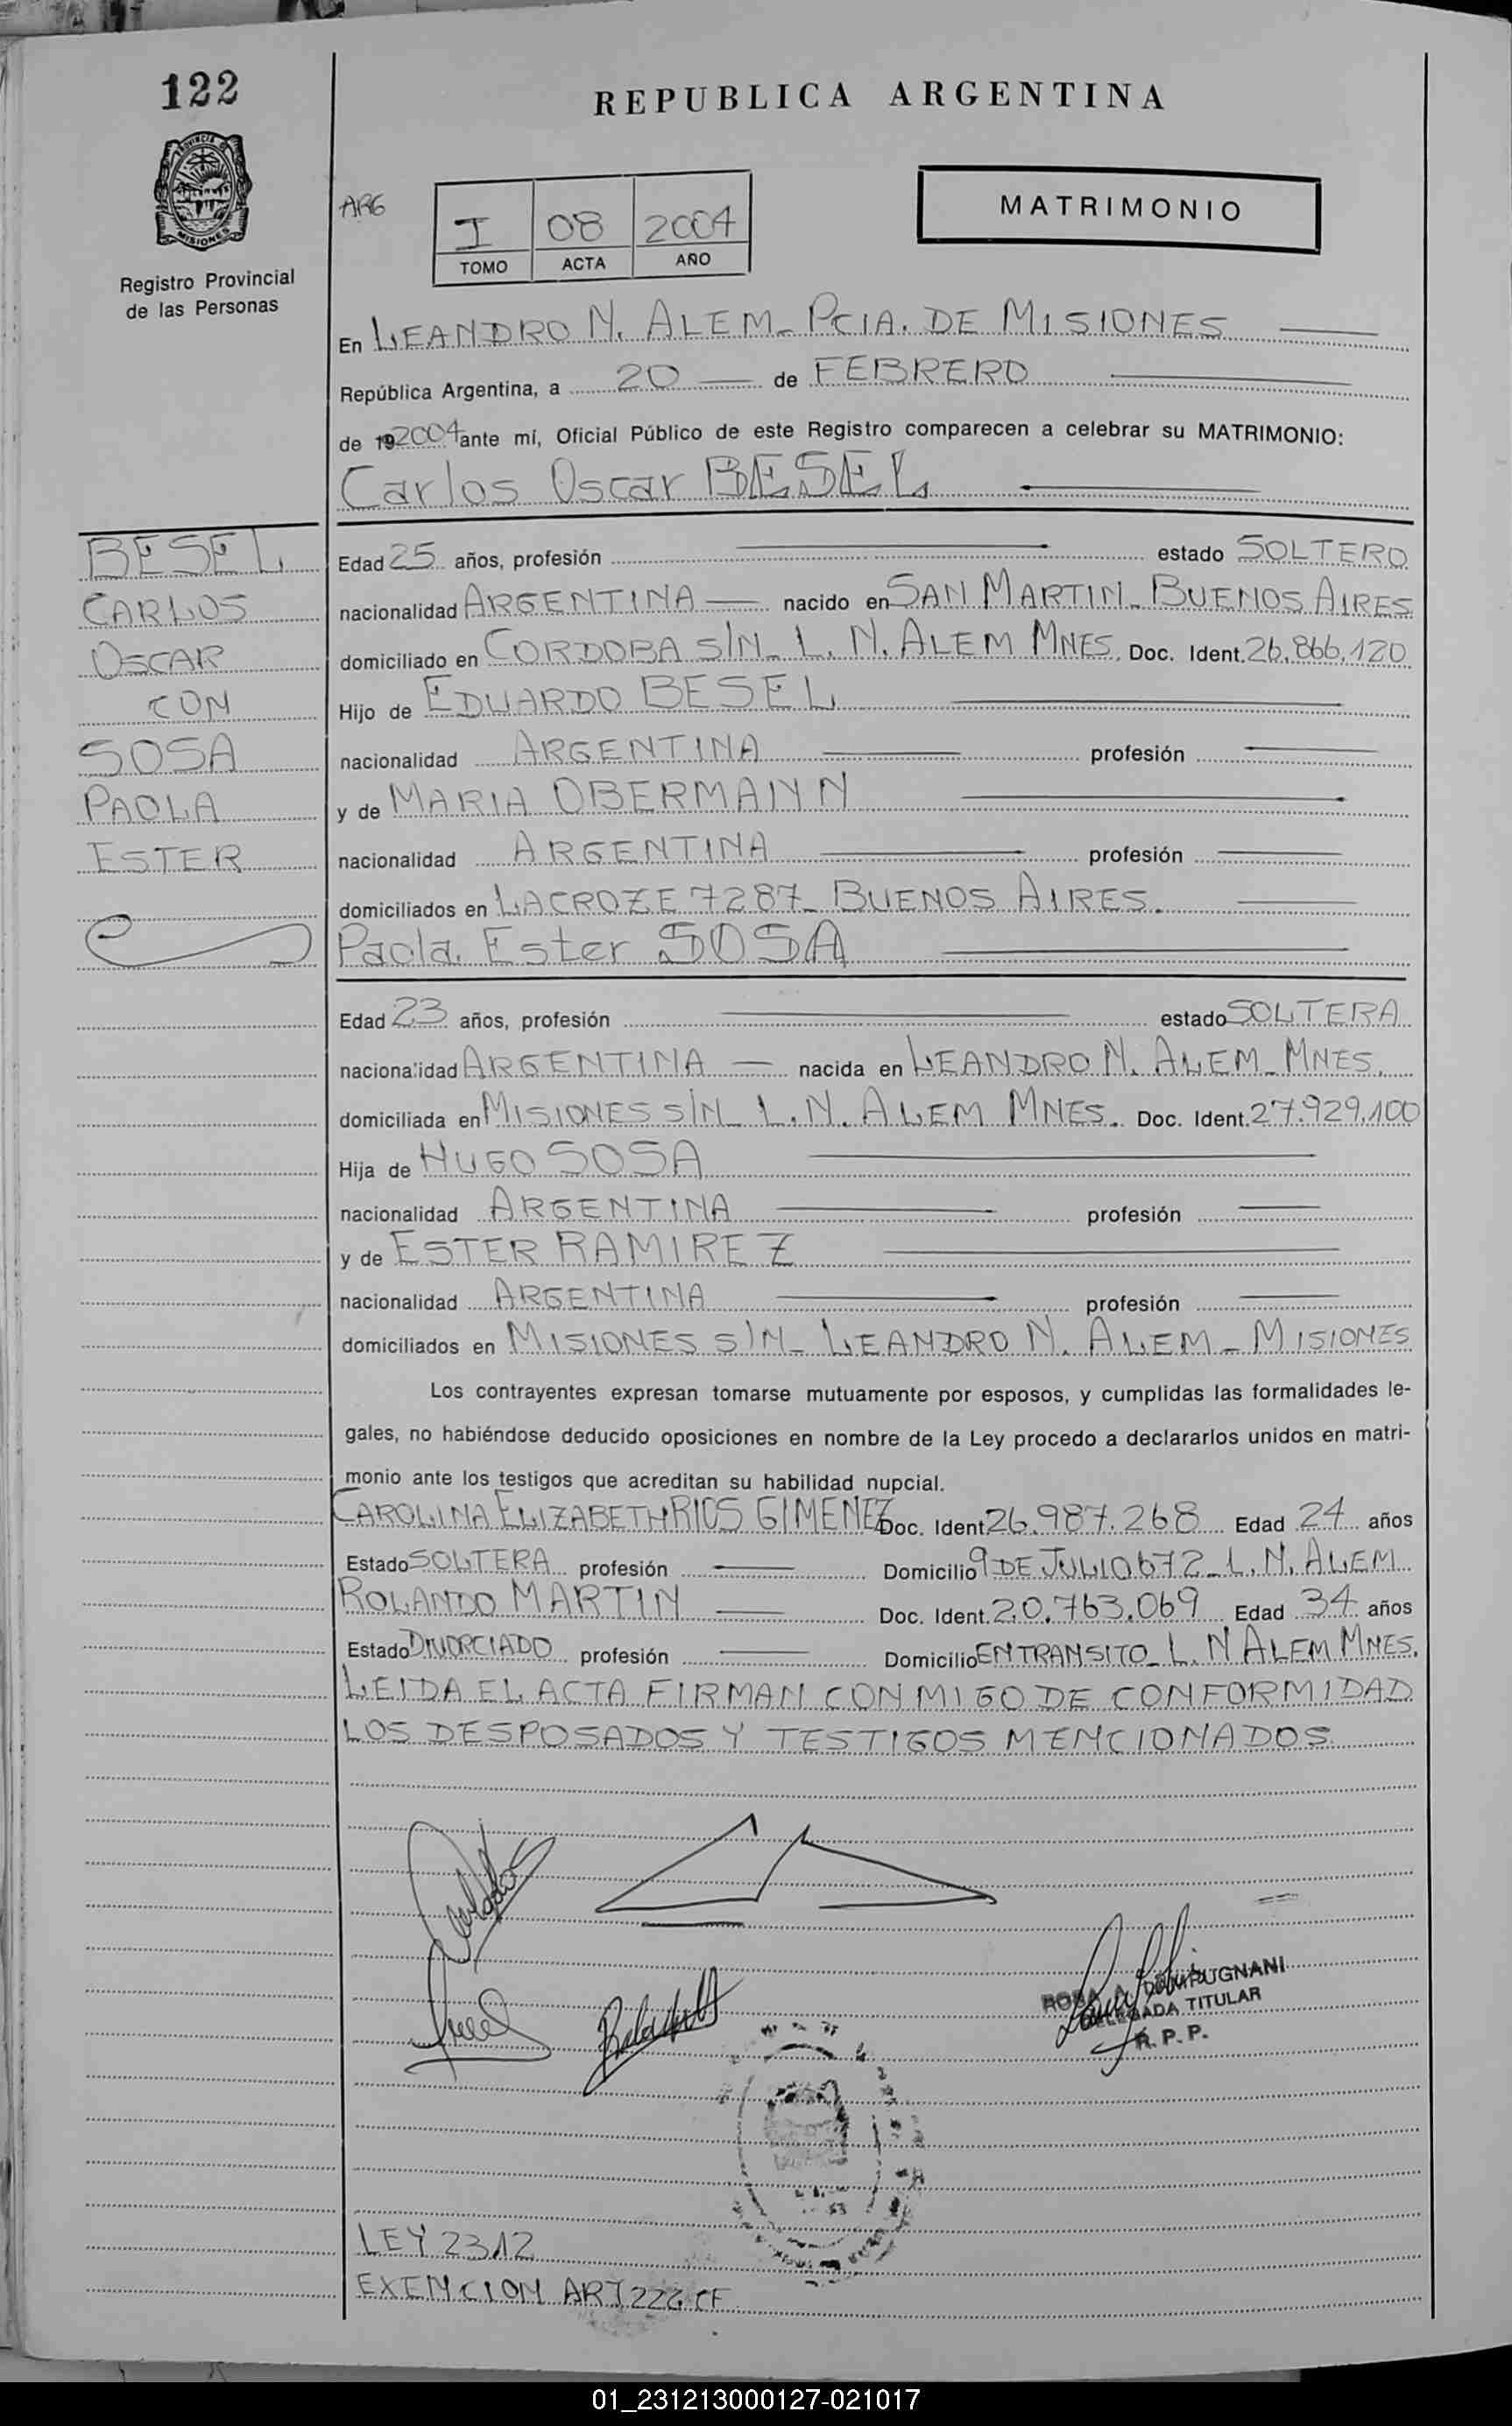 122
REPUBLICA ARGENTINA
MISIONES
Registro Provincial
de las Personas
ARG
I 08 2004
TOMO ACTA AÑO
MATRIMONIO
En LEANDRO N. ALEM - PCIA. DE MISIONES
República Argentina, a 20 de FEBRERO
de 19 2004 ante mí, Oficial Público de este Registro comparecen a celebrar su MATRIMONIO:
Carlos Oscar BESEL
BESEL
CARLOS
OSCAR
CON
SOSA
PAOLA
ESTER
Edad 25 años, profesión estado SOLTERO
nacionalidad ARGENTINA nacido en SAN MARTIN - BUENOS AIRES
domiciliado en CORDOBA S/N - L. N. ALEM MNES. Doc. Ident. 26.866.120
Hijo de EDUARDO BESEL
nacionalidad ARGENTINA profesión
y de MARIA OBERMANN
nacionalidad ARGENTINA profesión
domiciliados en LACROZE 7287 - BUENOS AIRES.
Paola Ester SOSA
Edad 23 años, profesión estado SOLTERA
nacionalidad ARGENTINA nacida en LEANDRO N. ALEM - MNES.
domiciliada en MISIONES S/N - L. N. ALEM MNES. Doc. Ident. 27.929.100
Hija de HUGO SOSA
nacionalidad ARGENTINA profesión
y de ESTER RAMIREZ
nacionalidad ARGENTINA profesión
domiciliados en MISIONES S/N - LEANDRO N. ALEM - MISIONES
Los contrayentes expresan tomarse mutuamente por esposos, y cumplidas las formalidades le-
gales, no habiéndose deducido oposiciones en nombre de la Ley procedo a declararlos unidos en matri-
monio ante los testigos que acreditan su habilidad nupcial.
CAROLINA ELIZABETH RIOS GIMENEZ Doc. Ident. 26.987.268 Edad 24 años
Estado SOLTERA profesión Domicilio 9 DE JULIO 672 - L. N. ALEM
ROLANDO MARTIN Doc. Ident. 20.763.069 Edad 34 años
Estado DIVORCIADO profesión Domicilio EN TRANSITO - L. N ALEM MNES.
LEIDA EL ACTA FIRMAN CONMIGO DE CONFORMIDAD
LOS DESPOSADOS Y TESTIGOS MENCIONADOS
ROSA
DELEGADA TITULAR
R. P. P.
LEY 2312
EXENCION ART 222 CF
01_231213000127-021017